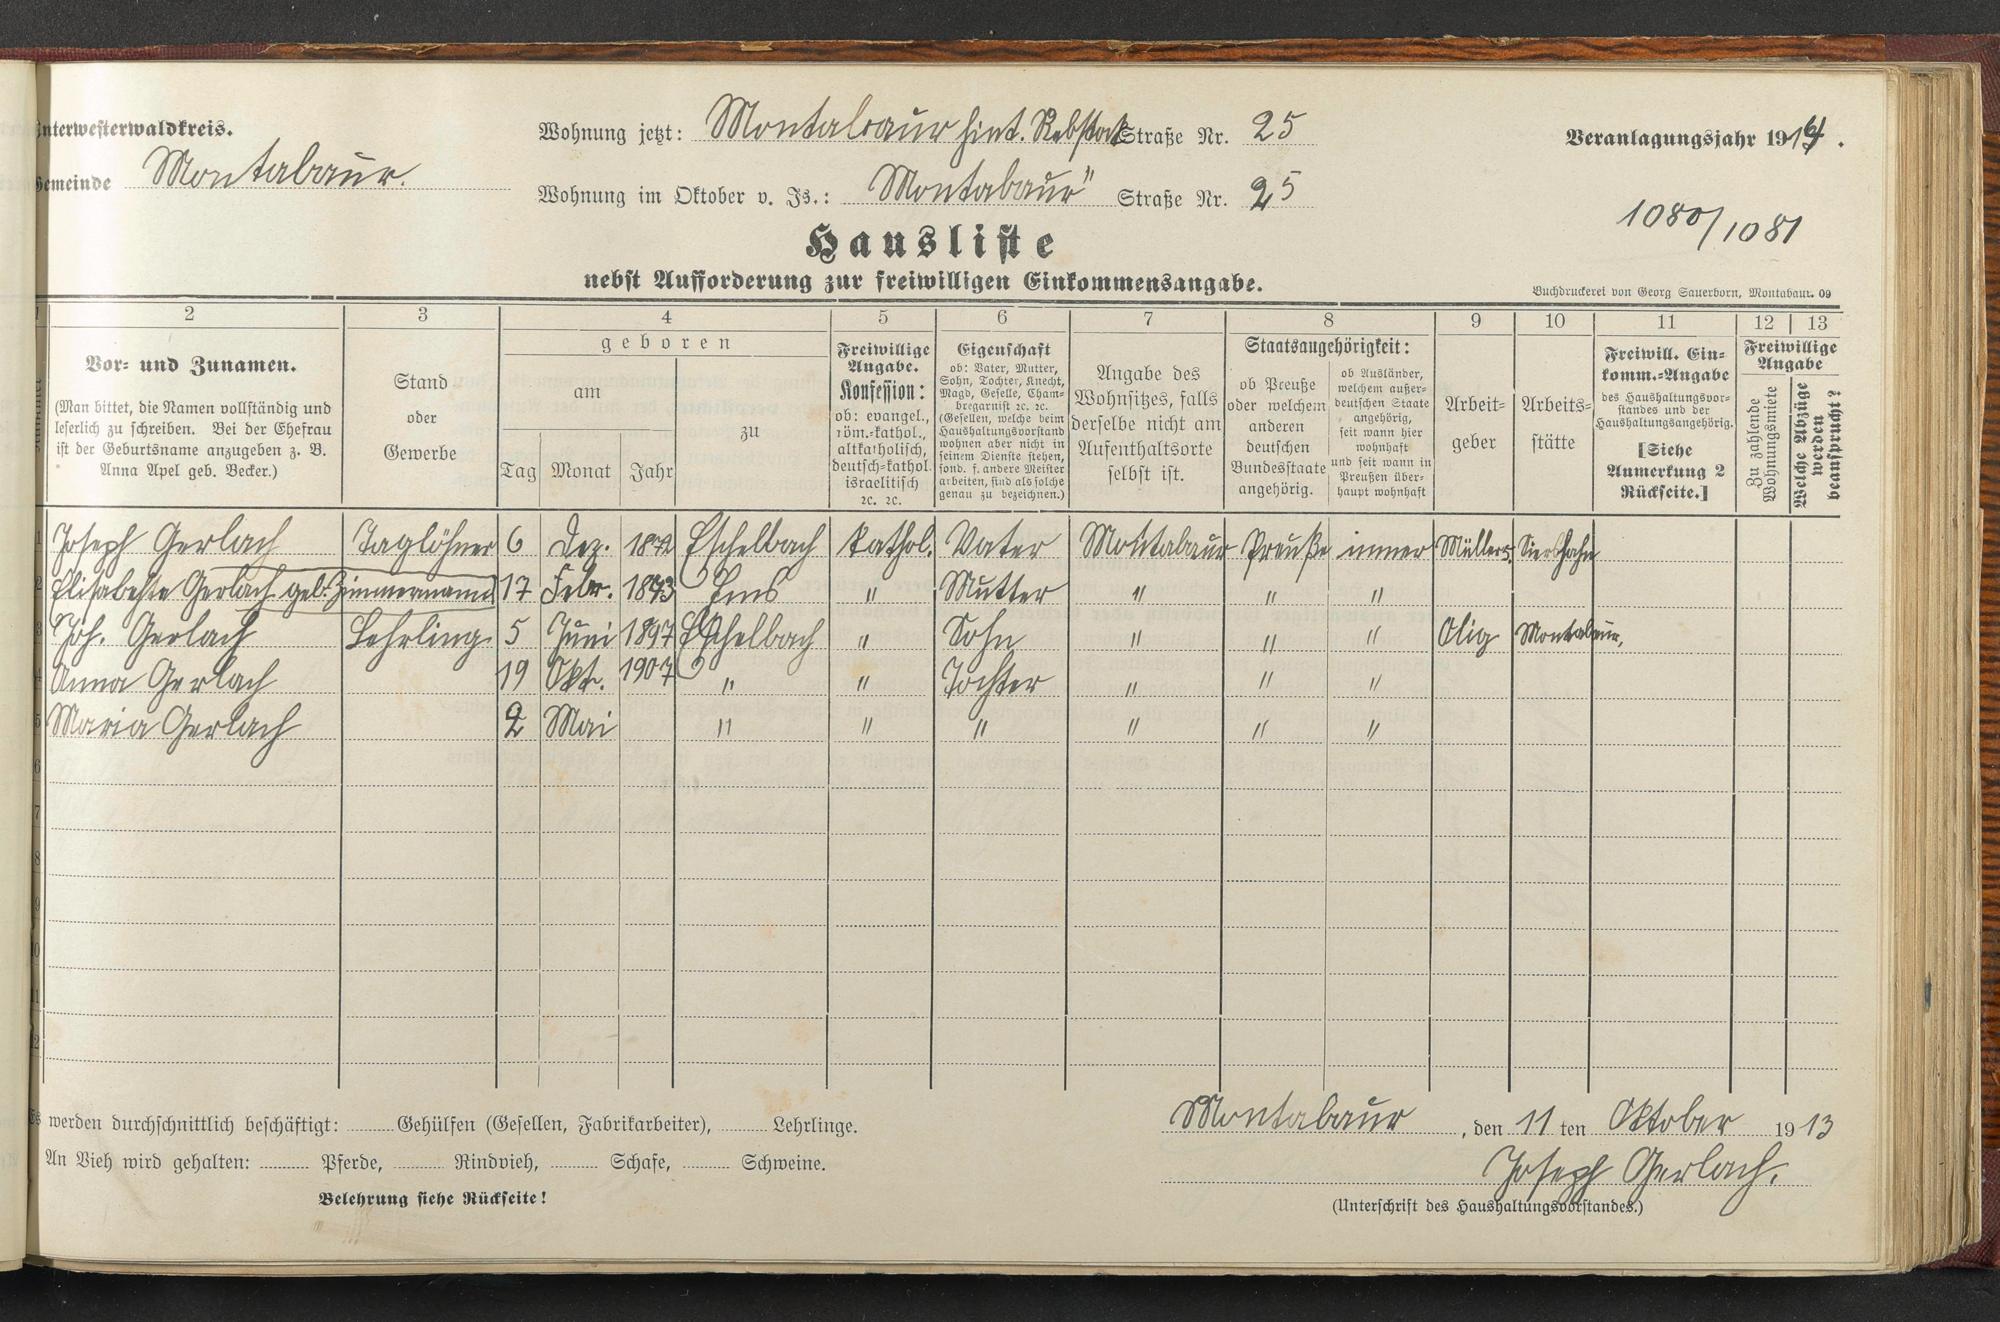 Unterwesterwaldkreis.
Wohnung jetzt: Montabaur hint. Rebstock Straße Nr. 25
Veranlagungsjahr 1914.
Gemeinde Montabaur.
Wohnung im Oktober v. Js.: Montabaur " Straße Nr. 25
1080/1081
Hausliste
nebst Aufforderung zur freiwilligen Einkommensangabe.
Buchdruckerei von Georg Sauerborn, Montabaur. 09
1 2 3 4 5 6 7 8 9 10 11 12 13
Vor- und Zunamen.
(Man bittet, die Namen vollständig und
leserlich zu schreiben. Bei der Ehefrau
ist der Geburtsname anzugeben z. B.
Anna Apel geb. Becker.)
Stand
oder
Gewerbe
geboren
am
Tag Monat Jahr
zu
Freiwillige
Angabe.
Konfession:
ob: evangel.,
röm.-kathol.,
altkatholisch,
deutsch-kathol.
israelitisch
ꝛc. ꝛc.
Eigenschaft
ob: Vater, Mutter,
Sohn, Tochter, Knecht,
Magd, Geselle, Cham-
bregarnist ꝛc. ꝛc.
(Gesellen, welche beim
Haushaltungsvorstand
wohnen aber nicht in
seinem Dienste stehen,
sond. f. andere Meister
arbeiten, sind als solche
genau zu bezeichnen.)
Angabe des
Wohnsitzes, falls
derselbe nicht am
Aufenthaltsorte
selbst ist.
Staatsangehörigkeit:
ob Preuße
oder welchem
anderen
deutschen
Bundesstaate
angehörig.
ob Ausländer,
welchem außer-
deutschen Staate
angehörig,
seit wann hier
wohnhaft
und seit wann in
Preußen über-
haupt wohnhaft
Arbeit-
geber
Arbeits-
stätte
Freiwill. Ein-
komm.-Angabe
des Haushaltungsvor-
standes und der
Haushaltungsangehörig.
[Siehe
Anmerkung 2
Rückseite.]
Freiwillige
Angabe
Zu zahlende
Wohnungsmiete
Welche Abzüge
werden
beansprucht?
1 Joseph Gerlach Taglöhner 6 Dez. 1872 Eschelbach kathol. Vater Montabaur Preuße immer Müllers Siershahn
2 Elisabehta Gerlach geb. Zimmermann 17 Febr. 1873 Ems " Mutter " " "
3 Joh. Gerlach Lehrling 5 Juni 1897 Eschelbach " Sohn " " " Olig Montabaur,
4 Anna Gerlach 19 Okt. 1907 " " Tochter " " "
5 Maria Gerlach 2 Mai " " " " " "
6
7
8
9
10
11
12
Es werden durchschnittlich beschäftigt: Gehülfen (Gesellen, Fabrikarbeiter), Lehrlinge.
Montabaur, den 11 ten Oktober 1913
An Vieh wird gehalten: Pferde, Rindvieh, Schafe, Schweine.
Joseph Gerlach.
Belehrung siehe Rückseite!
(Unterschrift des Haushaltungsvorstandes.)